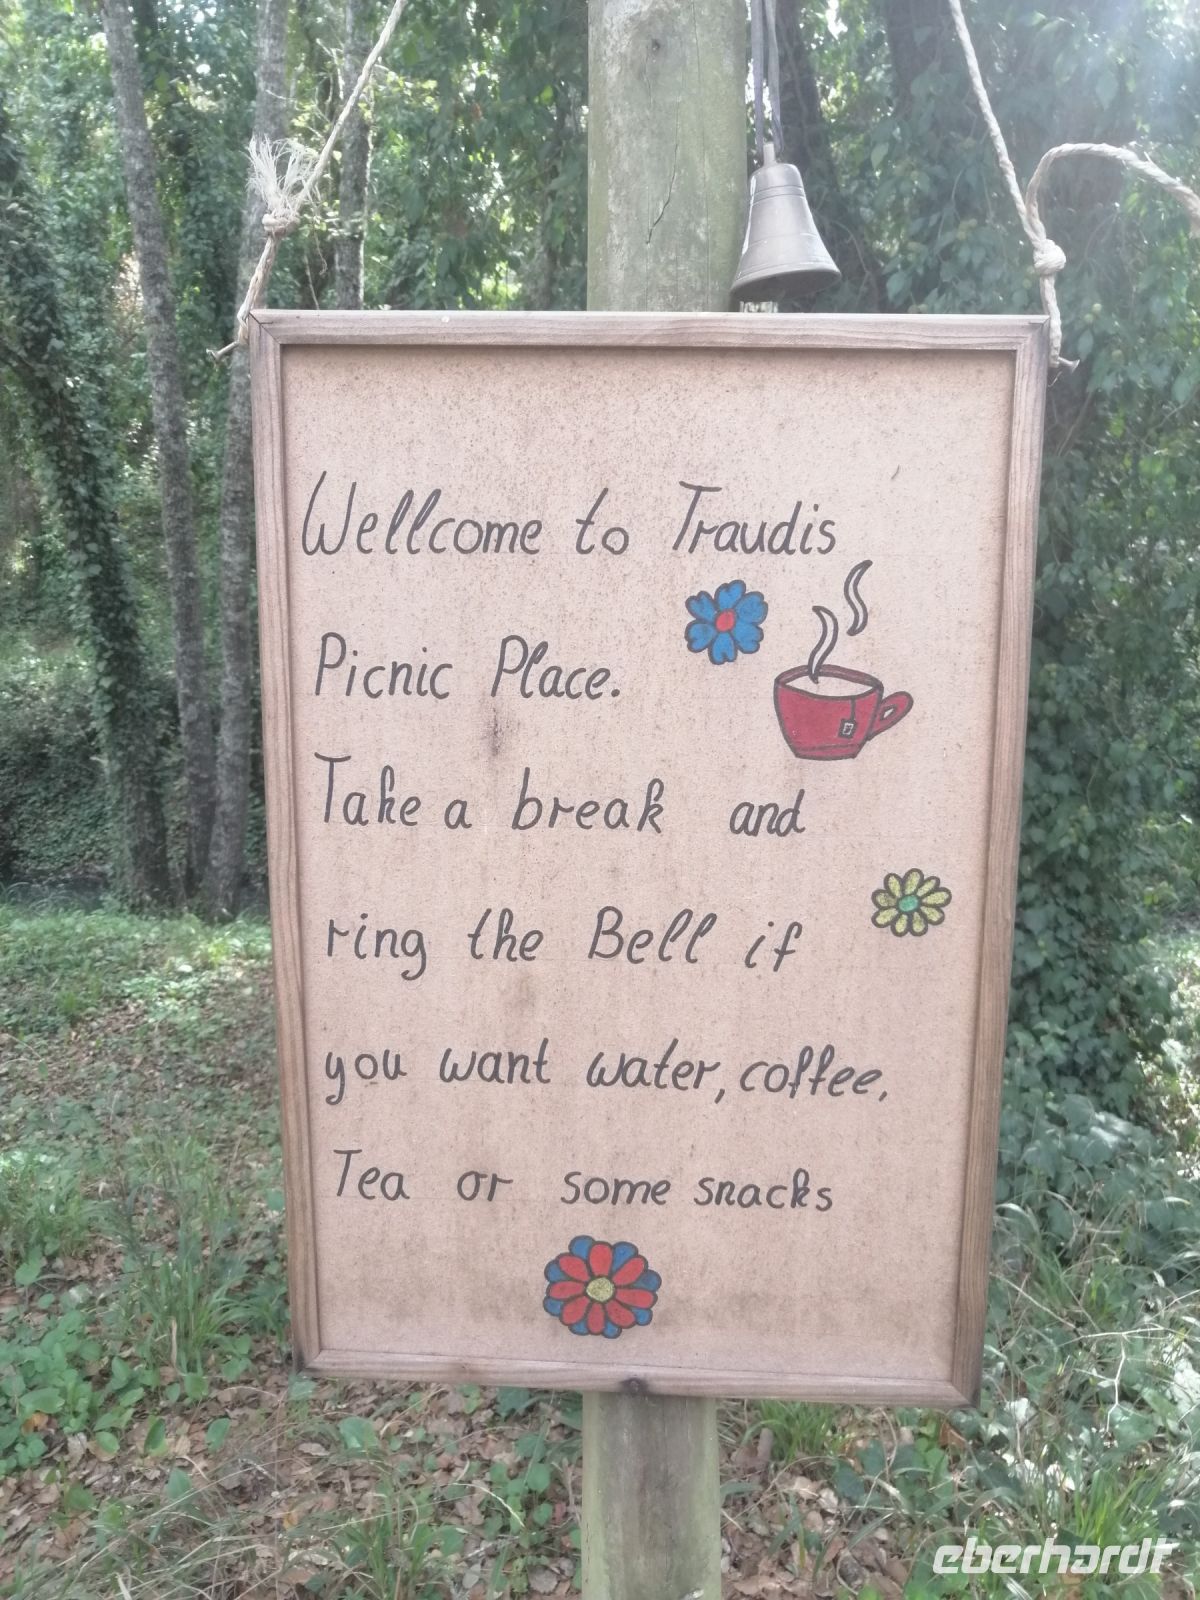 Wellcome to Traudis
Picnic Place.
Take a break and
ring the Bell if
you want water, coffee,
Tea or some snacks
eberhardt